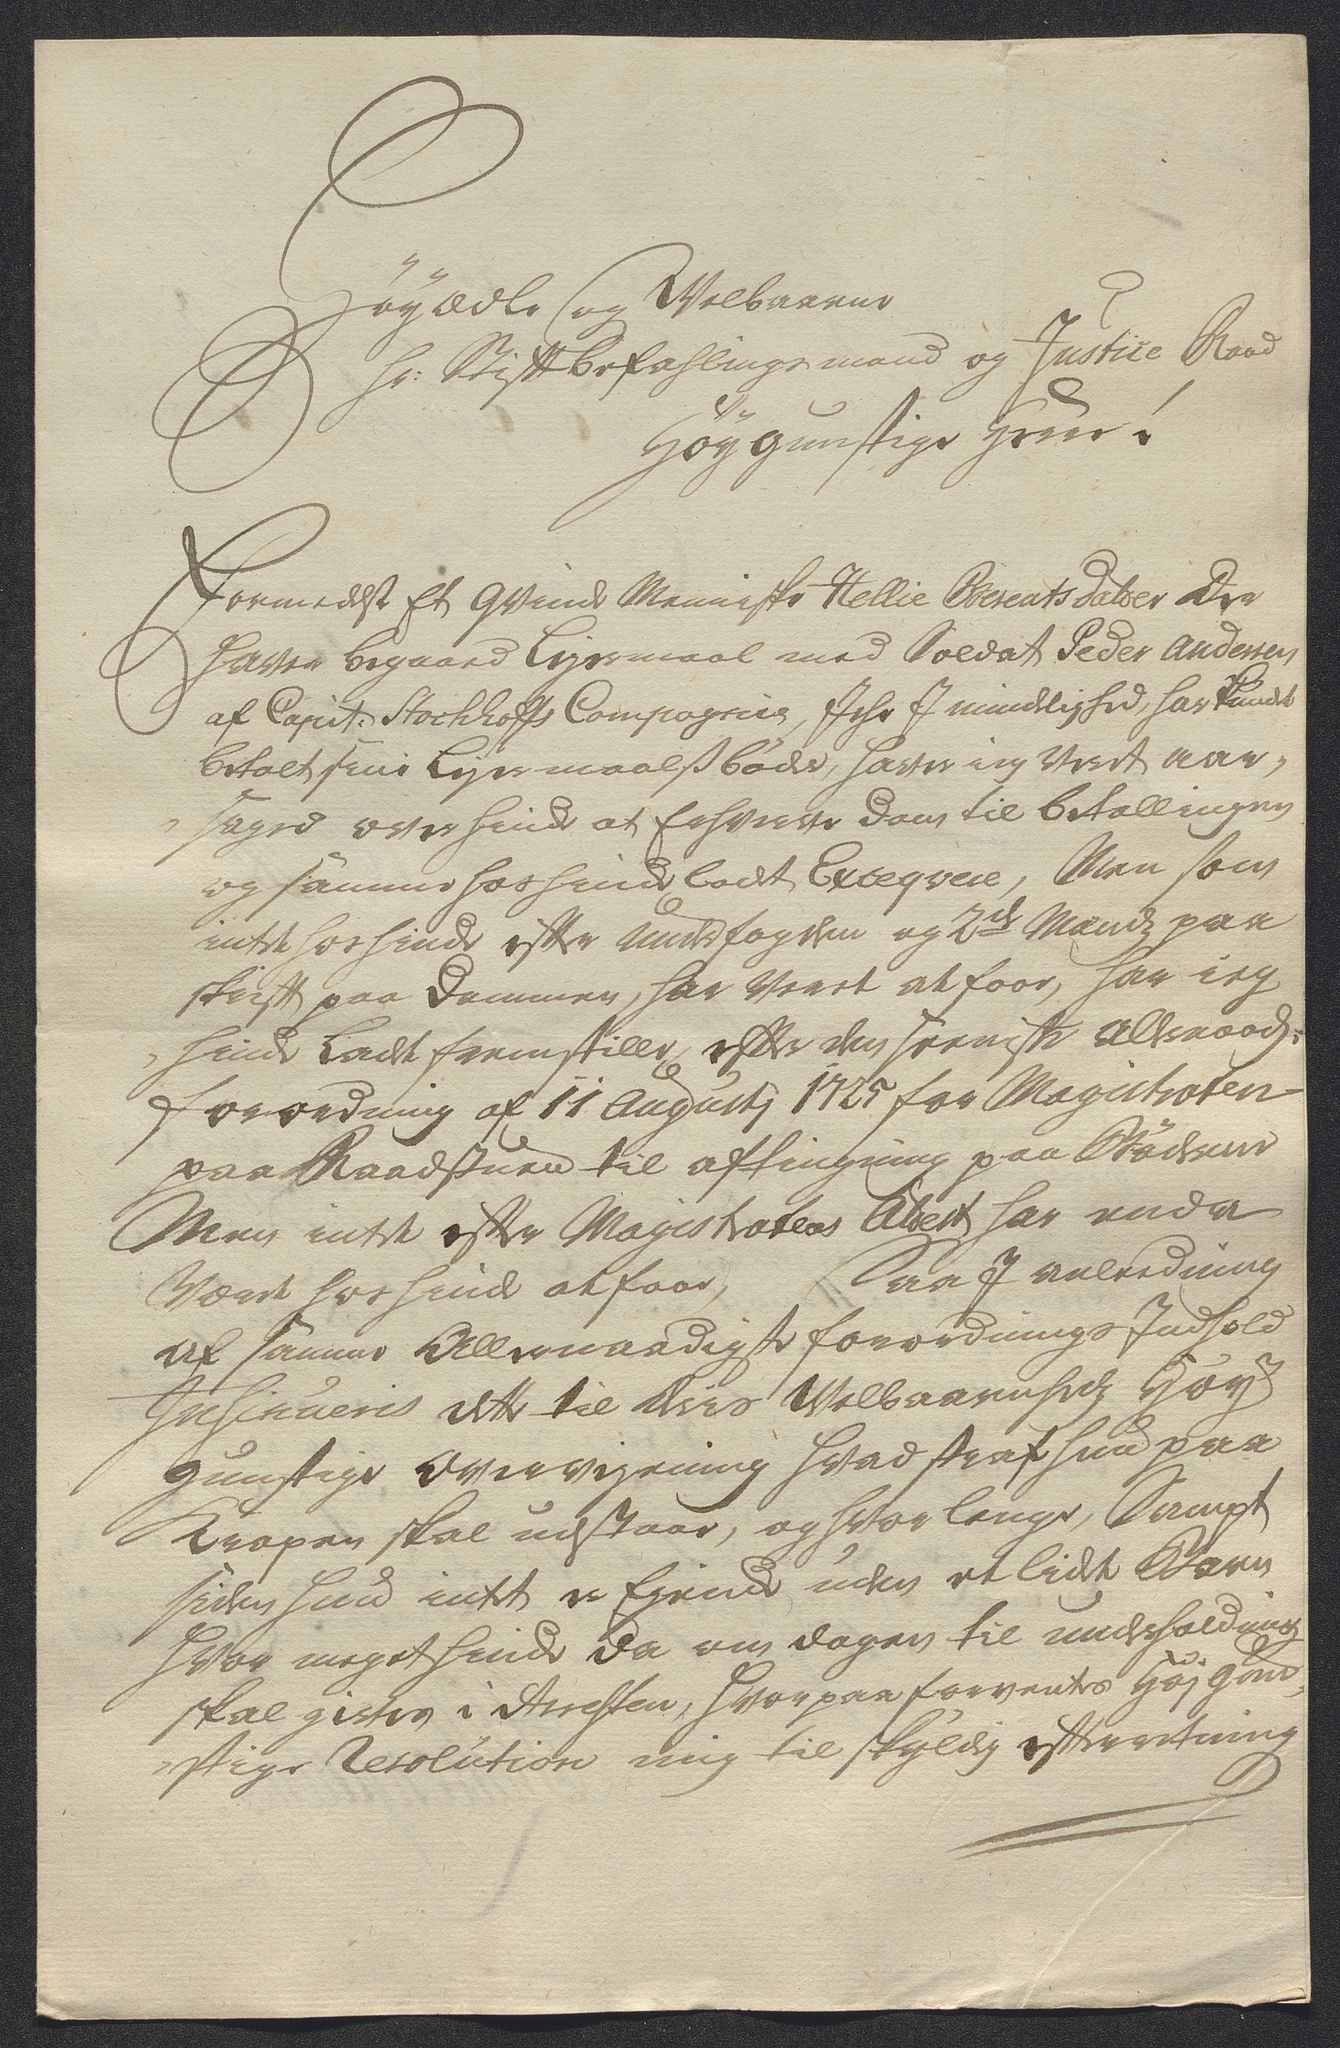 Höyædle og Welbaarne
Hr: Stiftbefahlingsmand og Justice Raad
Höygunstige Herre!
Formedelst Et Qvinde Menniske Nellie Berents datter der
haver begaaed Leyermaal med Soldat Peder Andersen
af Capit: Stockhoffs Compagnie, iche I mindelighed, har kundet
betalt sine Leyermaalsbøder, haver ieg veret aar,
saged over hinde at Erhverve dom til betallingen
og samme hos hinde ladt Exeqvere, Men som
intet hos hinde efter Underfogden og 2de Mænds paa
skrift paa Dommen, har veret at faae, har ieg
hinde Ladt fremstille, efter den seeniste Allernaad:
forordning af 11 Augustj 1725 for Magistraten
paa Raadstuen til aftingning paa Bøderne
Men intet efter Magistratens Attest har enda
Været hos hinde at faae, Saa I anleedning
af samme Allernaadigste forordnings Indhold
Insinueris dette til Deris Velbaarenheds Höy
gunstige overvejening hvad straf hun paa
Kroppen skal udstaae, og hvor lenge, Sampt
siden hun intet er Ejende uden et lidet Barn
hvor meget hinde da om dagen til underholdning
skal gives i Arresten, hvorpaa forventes Høj gun,
stige Resolution mig til skyldig efterretning